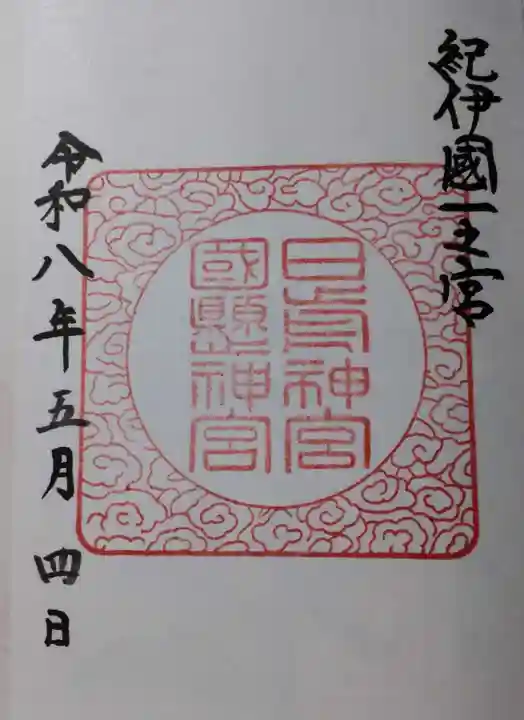 紀伊國一之宮
日前神宮
國懸神宮
令和八年五月四日